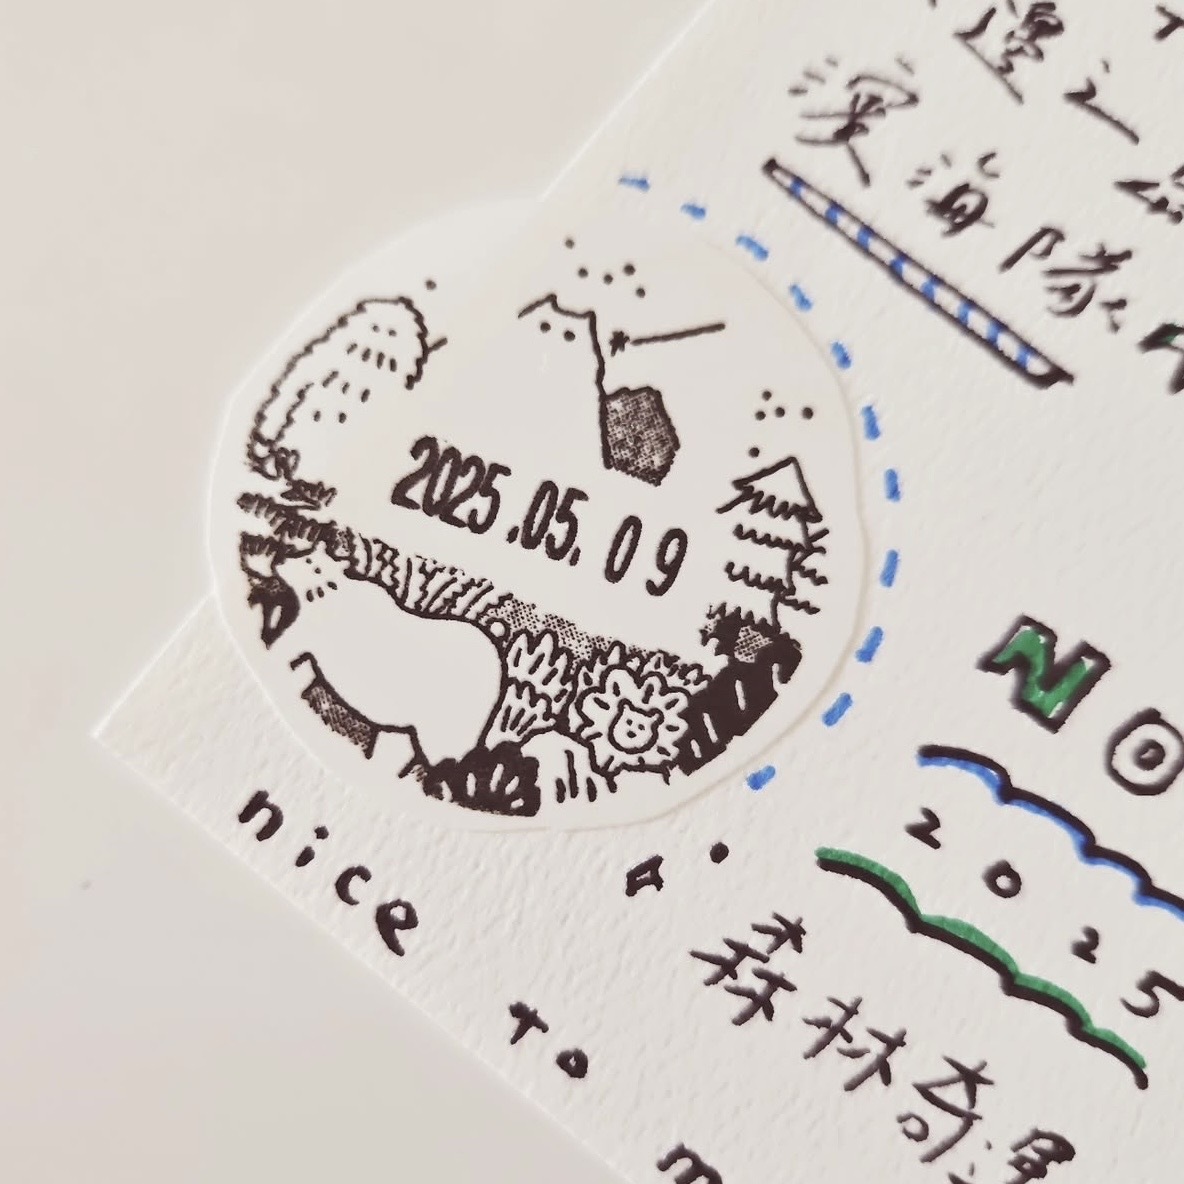 邊之
海隊
2025.05.09
NO
2025
nice
TO
m
森林奇遇